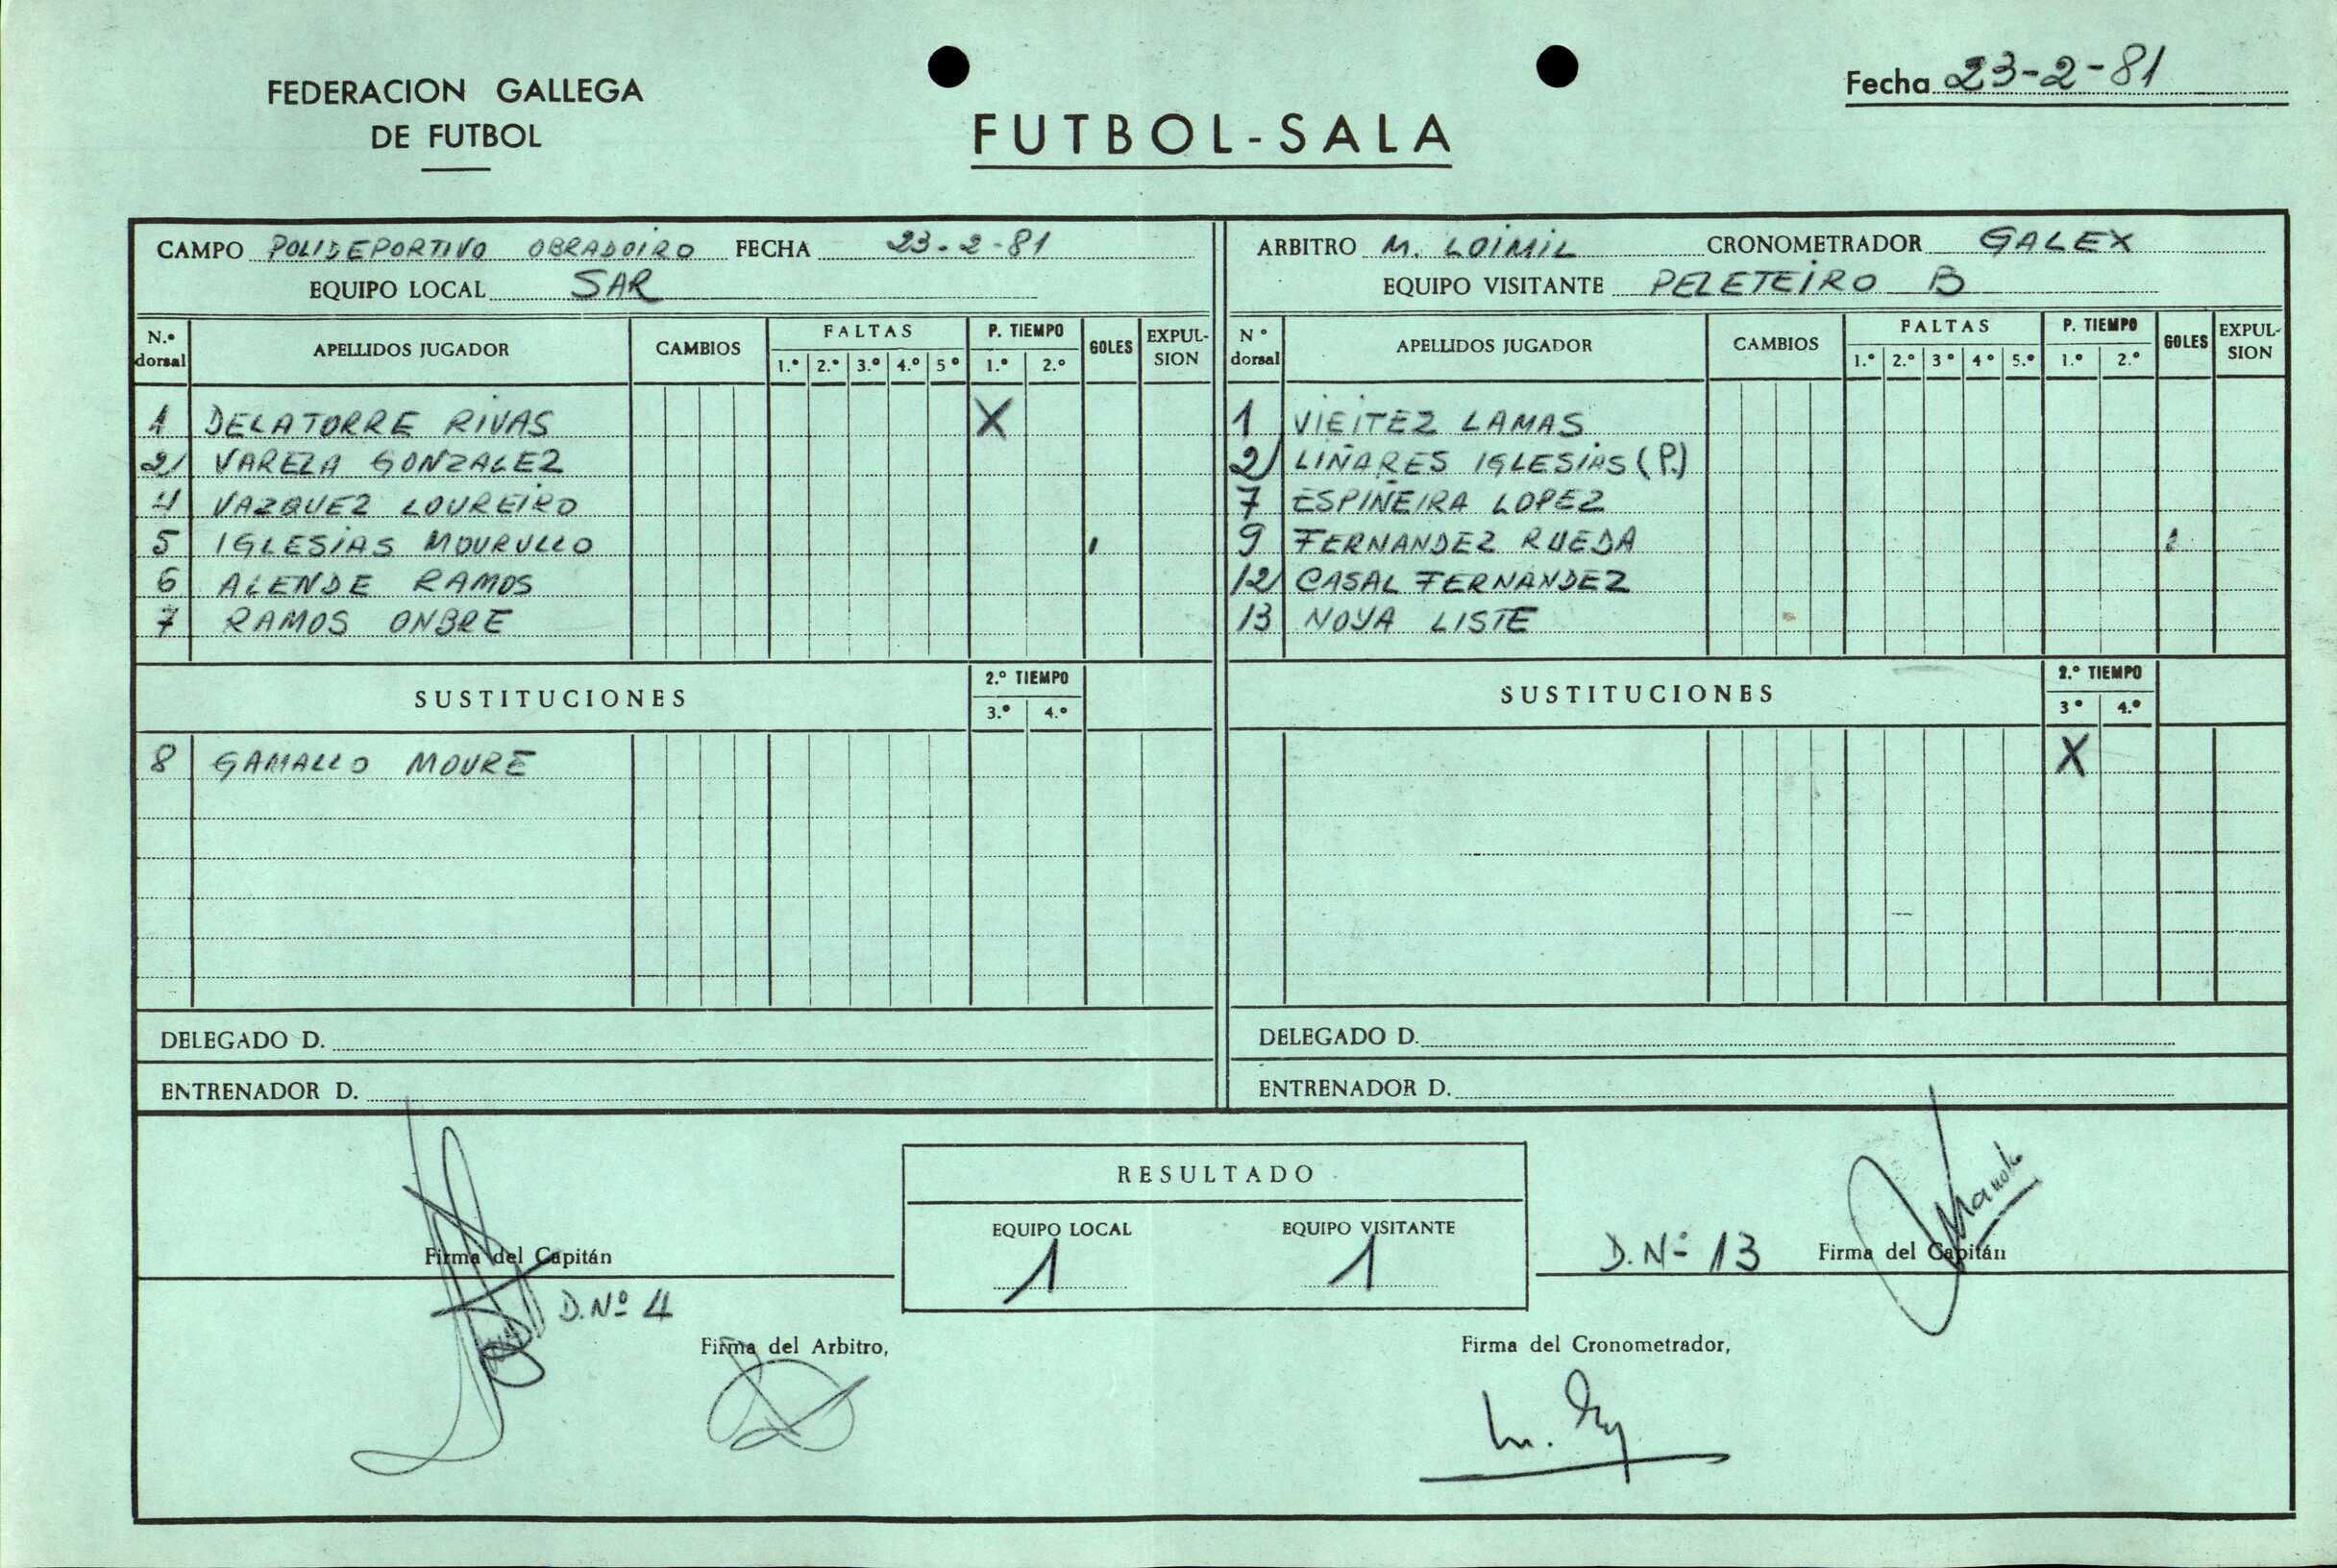 FEDERACION GALLEGA
DE FUTBOL
FUTBOL-SALA
Fecha 23-2-81
CAMPO POLIDEPORTIVO OBRADOIRO FECHA 23-2-81
EQUIPO LOCAL SAR
N.º dorsal APELLIDOS JUGADOR CAMBIOS FALTAS 1.º 2.º 3.º 4.º 5º P. TIEMPO 1.º 2.º GOLES EXPULSION
1 DELATORRE RIVAS X
2 VARELA GONZALEZ
4 VAZQUEZ LOUREIRO
5 IGLESIAS MOURULLO
6 ALENDE RAMOS
7 RAMOS ONBRE
SUSTITUCIONES 2.º TIEMPO 3.º 4.º
8 GAMALLO MOURE
DELEGADO D.
ENTRENADOR D.
ARBITRO M. LOIMIL CRONOMETRADOR GALEX
EQUIPO VISITANTE PELETEIRO B
Nº dorsal APELLIDOS JUGADOR CAMBIOS FALTAS 1.º 2.º 3º 4º 5.º P. TIEMPO 1.º 2.º GOLES EXPULSION
1 VIEITEZ LAMAS
2 LIÑARES IGLESIAS (P.)
7 ESPIÑEIRA LOPEZ
9 FERNANDEZ RUEDA
12 CASAL FERNANDEZ
13 NOYA LISTE
SUSTITUCIONES 2.º TIEMPO 3º 4.º
X
DELEGADO D.
ENTRENADOR D.
Firma del Capitán
D.Nº 4
RESULTADO
EQUIPO LOCAL EQUIPO VISITANTE
1 1
D.Nº 13 Firma del Capitán
Firma del Arbitro,
Firma del Cronometrador,